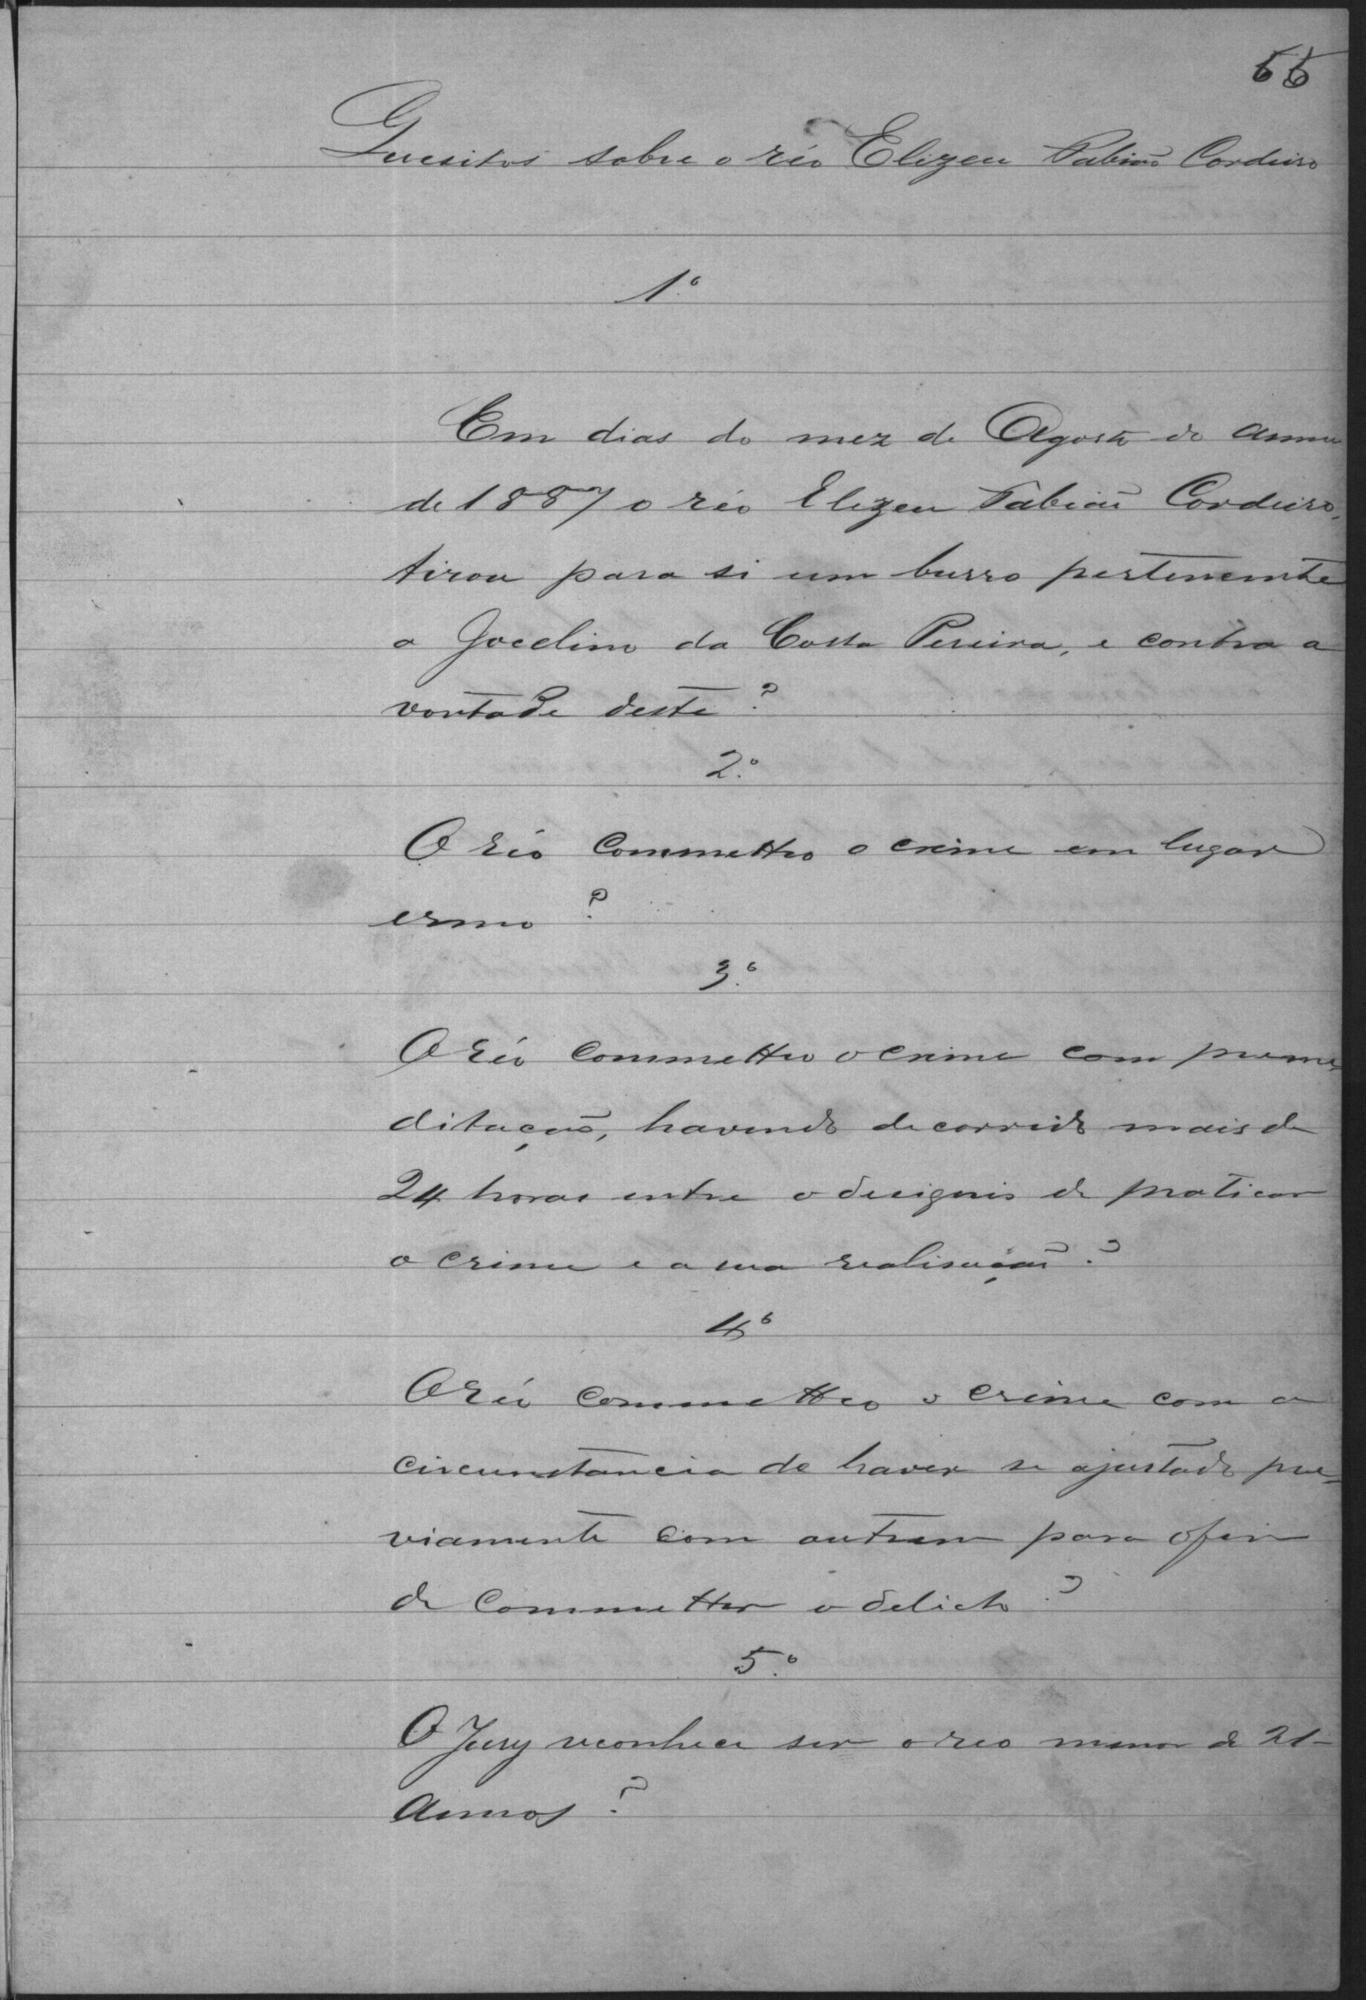 55
Quesitos sobre o réo Elizeu Fabião Cordeiro
1º
Em dias do mez de Agosto do anno
de 1887 o réo Elizeu Fabião Cordeiro,
tirou para si um burro pertencente
a Jocelino da Costa Pereira, e contra a
vontade deste?
2º
O réo commetteo o crime em lugar
ermo?
3º
O réo commetteu o crime com preme
ditação, havendo decorrido mais de
24 horas entre o designio de praticar
o crime e a sua realisação?
4º
O réo commetteo o crime com a
circunstancia de haver se ajustado pre=
viamente com outrem para o fim
de commetter o delicto?
5º
O Jury reconhece ser o reo menor de 21
annos?